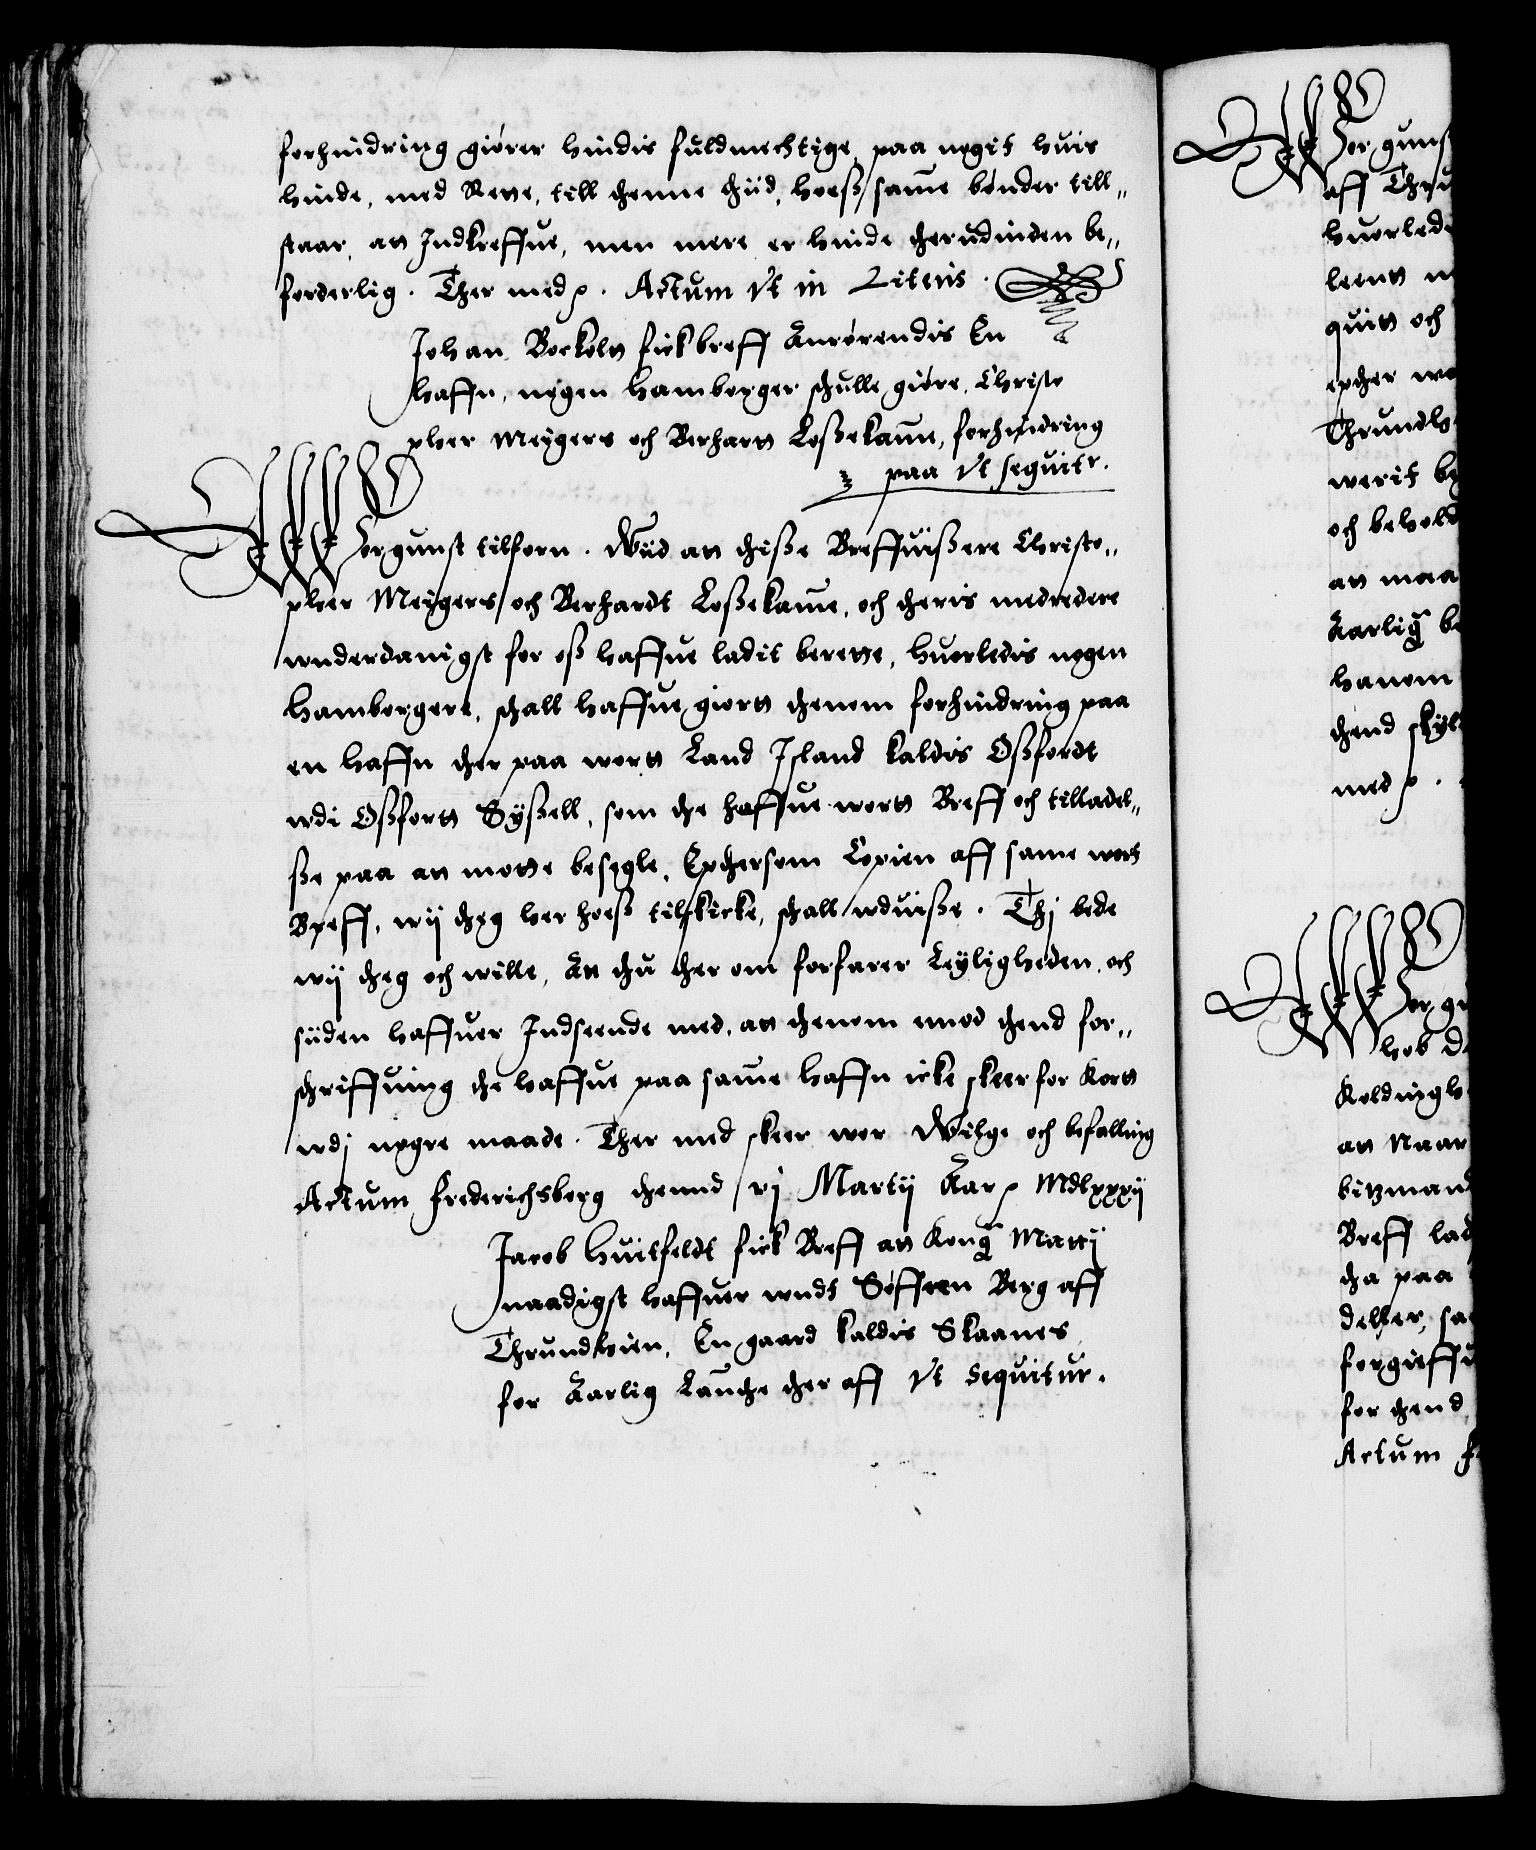 forhindring giører hindis fuldmechtige, paa nogit huis
hinde, med Rette, till thenne thiid, hoeß same bønder till,,
staar, at Indkreffue, men mere er hinde therudinden be,,
forderlig. Ther med p. Actum Vt in Literis.
Johan Bockolt fick breff Anrørendis En
haffn, nogen Hamborger schulle giøre, Christo
pher Meygers och Berhart Loßekanne, forhindring
paa Vt sequitr.
Wor gunst tilforn. Wiid at thiße Breffuißere Christo,,
pher Meygers och Berhardt Loßekanne, och theris medredere
wnderdanigst for oß haffue ladit berette, huorledis nogen
Hamborgere, schall haffue giort thenom forhindring paa
en haffn ther paa wort Land Island kaldis Oßfordt
wdi Oßfort Syßell, som the haffue wort Breff och tilladel,,
ße paa at motte besegle, Epthersom Copien aff same wort
Breff, wij theg her hoeß tilskicke, schall wduiße. Thj bede
wij theg och wille, At thu ther om forfarer Leyligheden, och
siiden haffuer Indseende med, at thenom emod thend for,,
schriffuing the haffue paa same haffn icke skeer for kort
wdj nogre maade. Ther med skeer wor Wilge och befalling
Actum Frederichsborg thennd vj Martij Aar p Mdlxxxij
Jacob Huitfeldt fick Breff at Kong Matt
naadigst haffuer wndt Søffren Berg aff
Thrundhiem, En gaard kaldis Skaanes
for Aarlig Landge ther aff Vt sequitur.
Wor gunst
aff Thru
huorlede
leent
quit och
epther
Thrundh
werit
och behold
at maa
Aarlig be
hanom
thend skyl
med p.
Wor gu
hob
Koldingh
at Naar
bitzmand
Breff lad
tha paa
deller, sa
forgieffu
for thend
Actum F